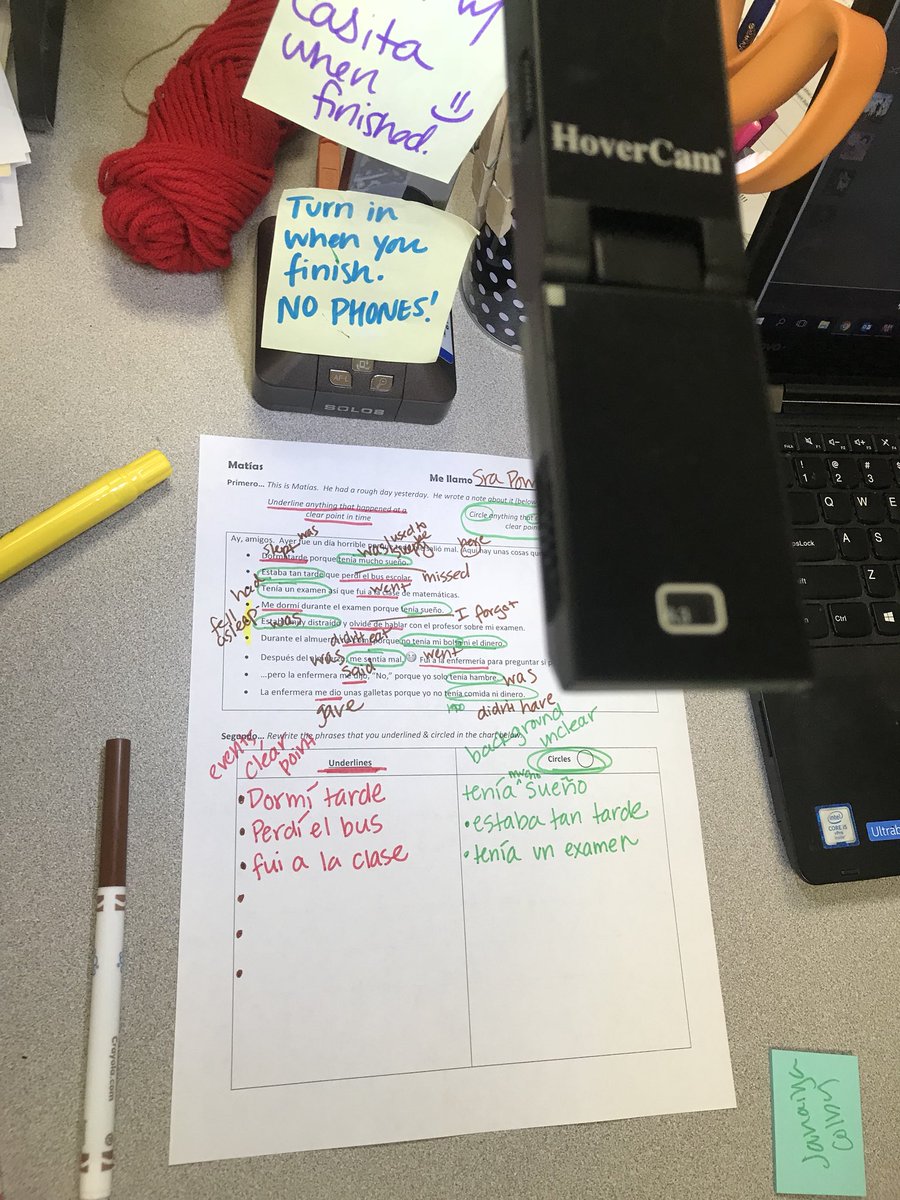 Casita
when
finished.
Turn in
when you
finish.
NO PHONES!
HoverCam
SOLOS
Matías
Me llamo Sra Pow
Primero... This is Matías. He had a rough day yesterday. He wrote a note about it (below
Underline anything that happened at a
clear point in time
Circle anything that
clear point
Ay, amigos. Ayer fue un día horrible salió mal. Aquí hay unas cosas que
was
used to
here
slept
was
sleepy
Dormí tarde porque tenía mucho sueño.
Estaba tan tarde que perdí el bus escolar.
missed
had
went
Tenía un examen así que fui a la clase de matemáticas.
Me dormí durante el examen porque tenía sueño.
fell
asleep
was
I forgot
Estaba muy distraído y olvide de hablar con el profesor sobre mi examen.
didn't eat
Durante el almuerzo porque no tenía mi bolsa ni el dinero.
was
went
Después del me sentía mal. Fui a la enfermería para preguntar si
said
was
...pero la enfermera me dijo, "No," porque yo solo tenía hambre.
La enfermera me dio unas galletas porque yo no tenía comida ni dinero.
gave
didn't have
Segundo... Rewrite the phrases that you underlined & circled in the chart below.
events
clear
point
background
unclear
Underlines
Circles
Dormí tarde
Perdí el bus
fui a la clase
tenía mucho sueño
estaba tan tarde
tenía un examen
Crayola.com
intel
CORE i5
Ultrab